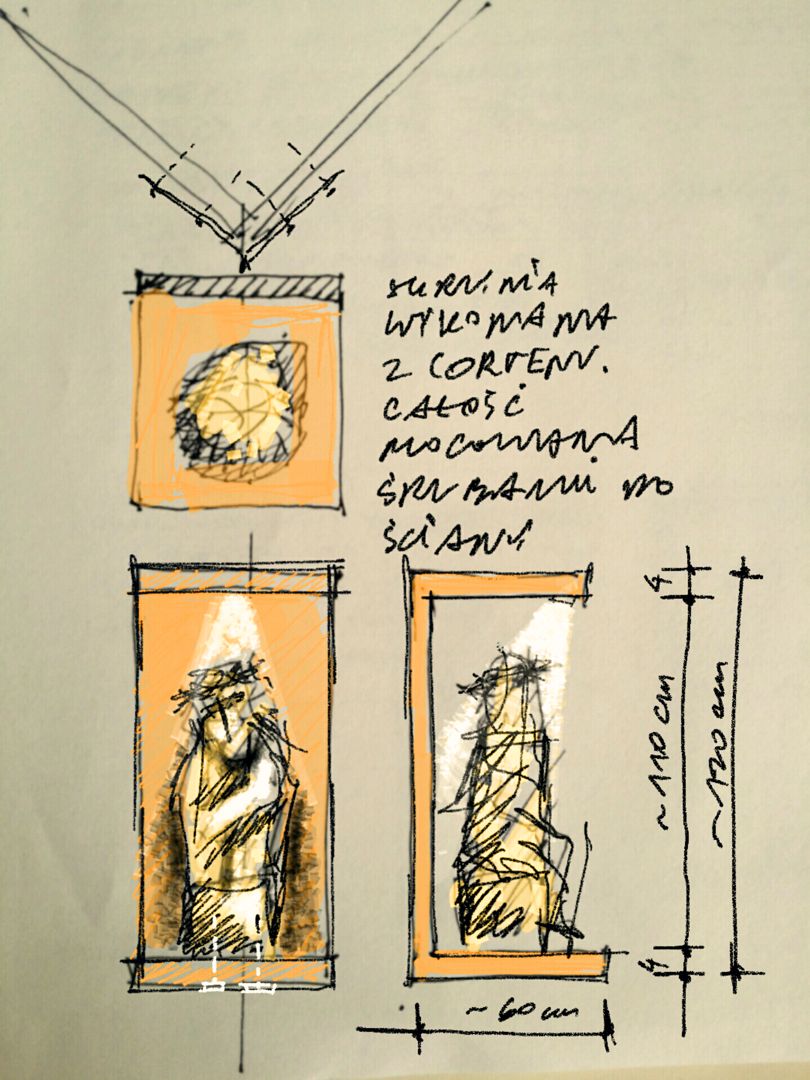 SKRZYNIA
WYKONANA
Z CORTENU.
CAŁOŚĆ
MOCOWANA
ŚRUBAMI DO
ŚCIANY
4
~110 cm
~120 cm
4
~60 cm